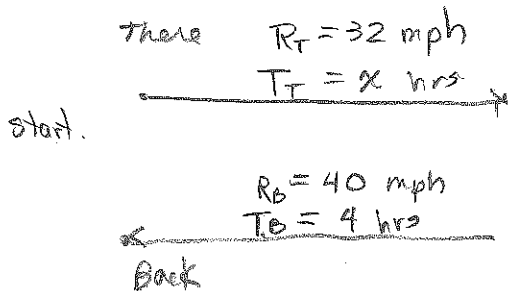 There
R_T = 32 mph
T_T = x hrs
start.
R_B = 40 mph
T_B = 4 hrs
Back